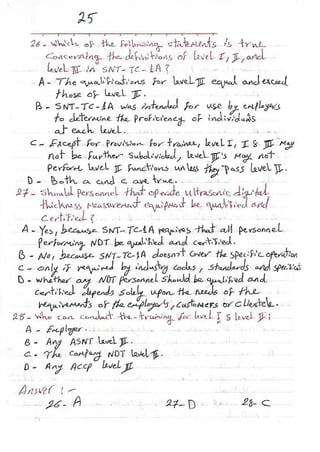 25
26- Which of the following statements is true
Concerning the definitions of level I, II, and
level III in SNT-TC-1A?
A - The qualifications for level III equal and exceed
those of level II.
B - SNT-TC-1A was intended for use by employers
to determine the Proficiency of individuals
at each level.
C - Except for Provision for trainee, level I, II & III may
not be further subdivided, level III's may not
Perform level II functions unless they pass level II.
D - Both a and c are true.
27- Should Personnel that operate ultrasonic digital
thickness measurement equipment be qualified and
Certified?
A - Yes, because SNT-TC-1A requires that all personnel
Performing NDT be qualified and certified.
B - No, because SNT-TC-1A doesn't cover the specific operation
C - only if required by industry codes, standards and specific
D - whether any NDT Personnel should be qualified and
certified depends solely upon the needs of the
requirements of the employer's, customers or clientele.
25- Who can conduct the training for level I & level II:
A - Employer.
B - Any ASNT level III.
C - The Company NDT level III.
D - Any ACCP level II
Answer :-
26- A 27- D 28- C